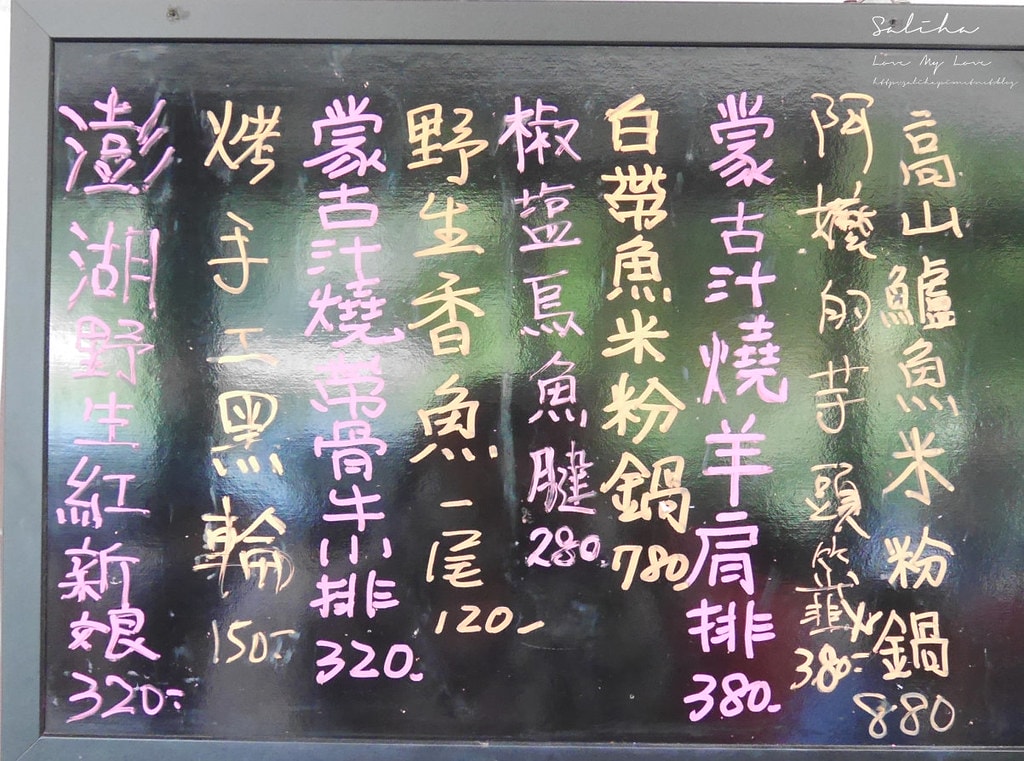 Saliha
Love My Love
高山鱸魚米粉鍋 880
阿嬤的芋頭 380-
蒙古汁燒羊肩排 380-
白帶魚米粉鍋 780
椒塩烏魚腱 280.
野生香魚 一尾 120-
蒙古汁燒帶骨牛小排 320.
烤手工黑輪 150-
澎湖野生紅新娘 320-